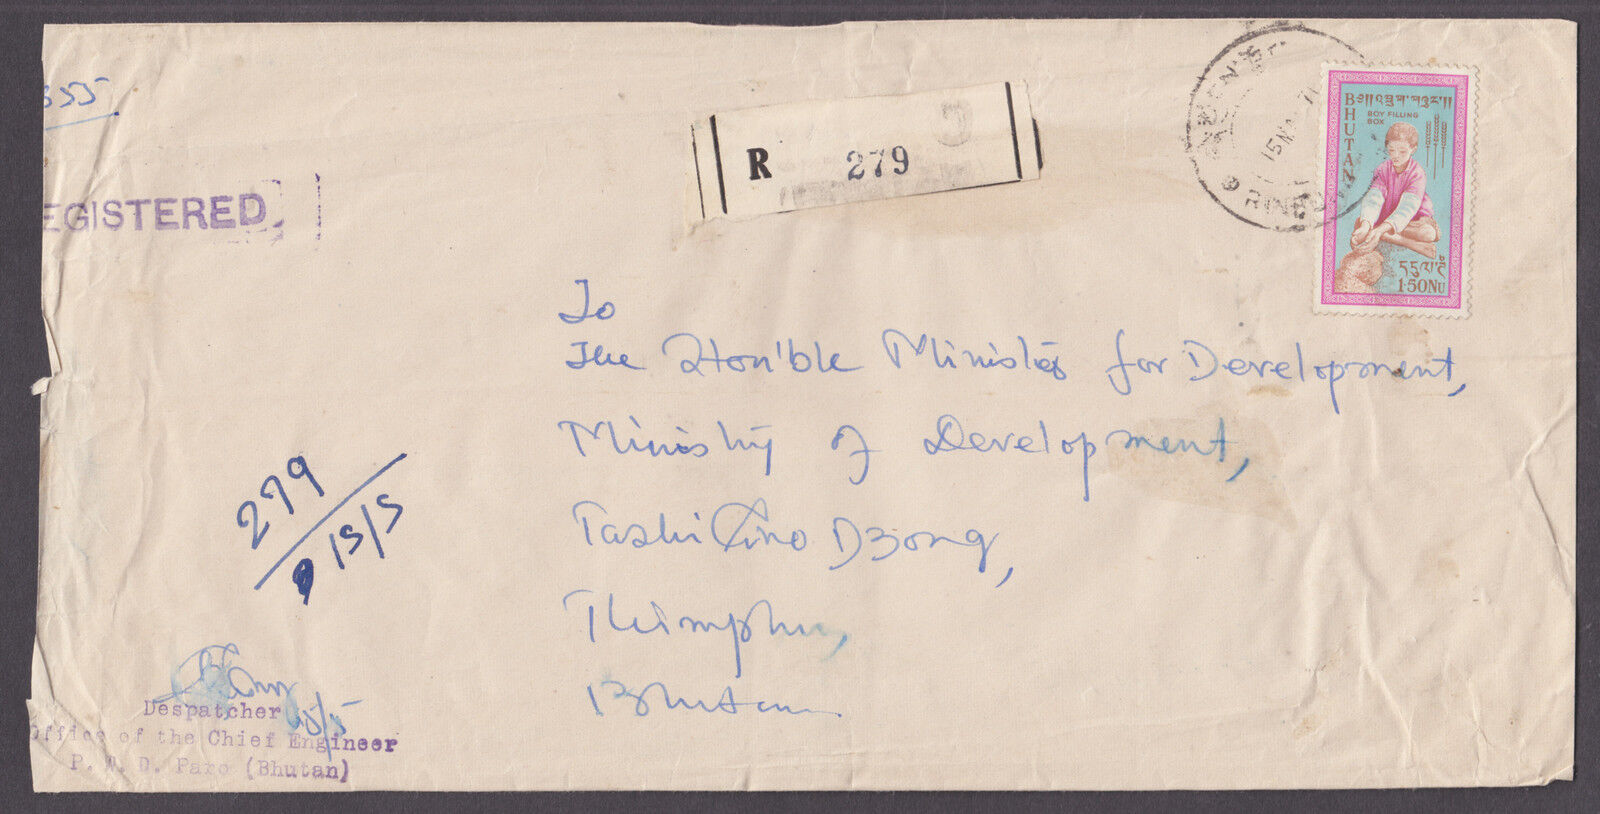 555
EGISTERED
R 279
15 MA 71
RINPUNG
BHUTAN
འབྲུག་གཞུང།།
BOY FILLING
BOX
1·50 NU
To
The Hon'ble Minister for Development,
Ministry of Development,
Tashi Dzong,
Thimphu,
Bhutan
279
15/5
15/5
Despatcher
Office of the Chief Engineer
P. W. D. Paro (Bhutan)